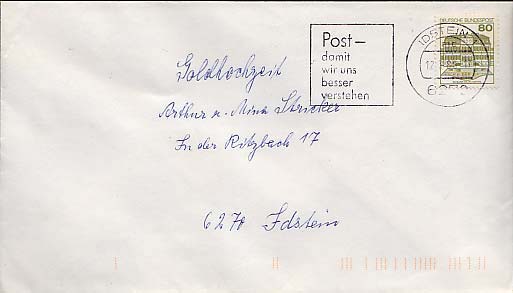 Post–
damit
wir uns
besser
verstehen
IDSTEIN
DEUTSCHE BUNDESPOST
80
Goldhochzeit
Arthur u. Mina Stricker
In der Ritzbach 17
6270 Idstein